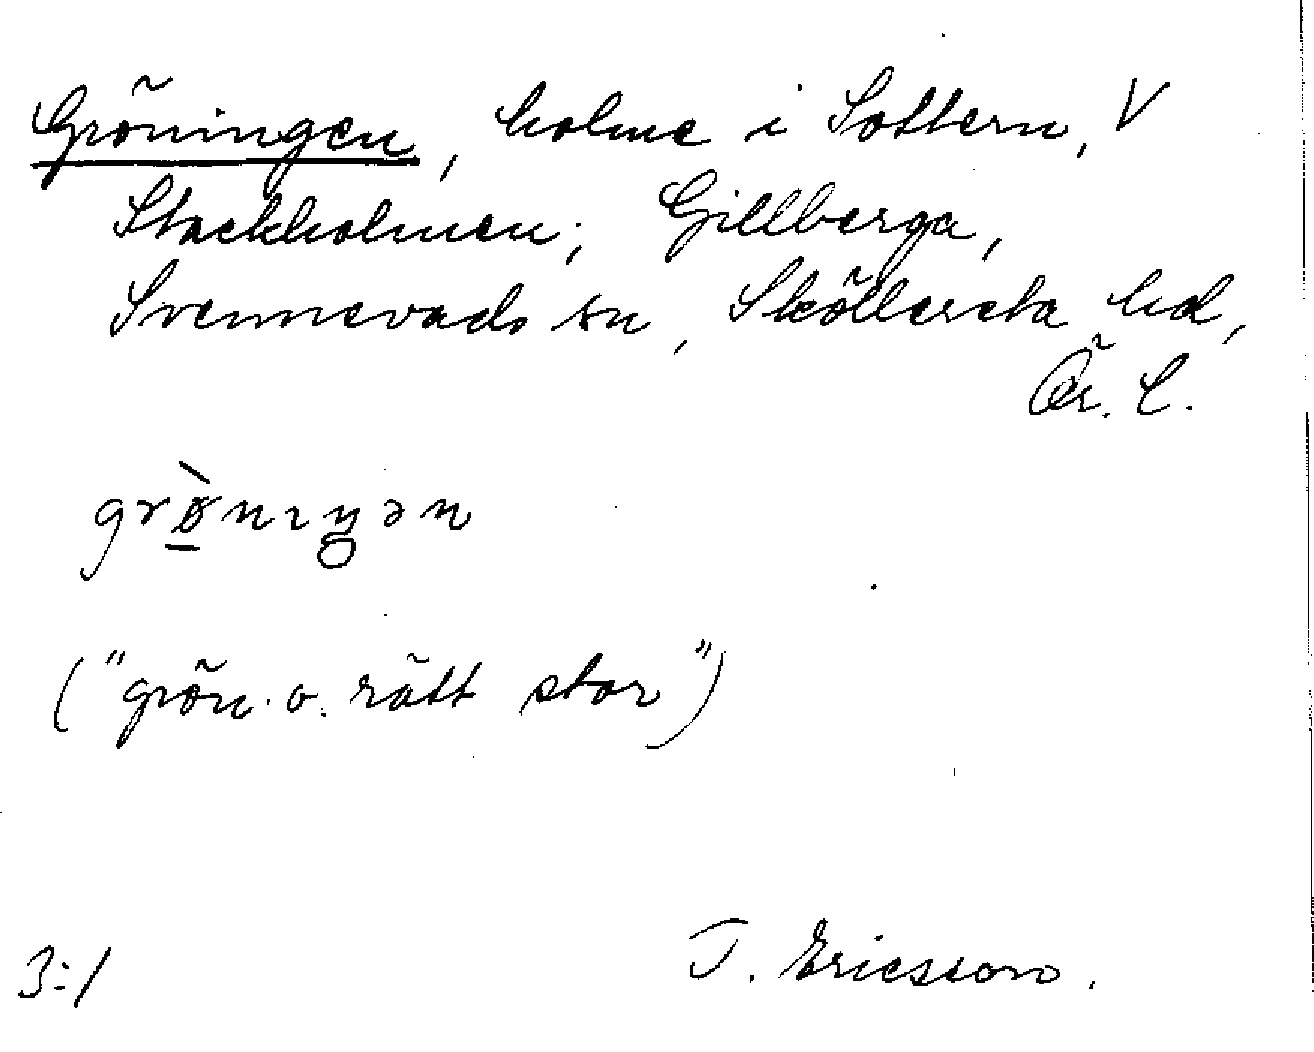 Gröningen, holme i Sottern, V
Stockholmen; Gillberga,
Svennevads sn, Sköllersta hd,
Ör. l.
("grön o. rätt stor")
3:1
T. Ericsson.